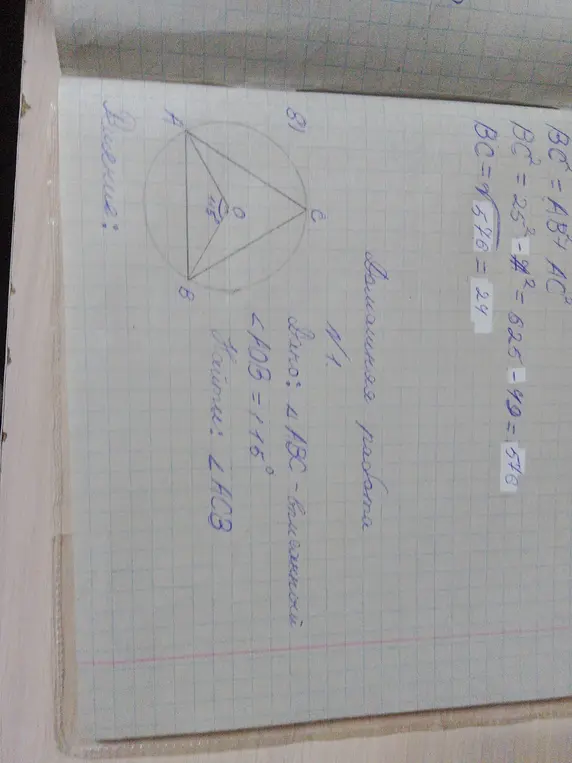 BC² = AB² + AC²
BC² = 25² - 7² = 625 - 49 = 576
BC = √576 = 24
Домашняя работа
N 1.
8)
Дано: △ ABC - вписанный
∠AOB = 115°
Найти: ∠ACB
C
O
115°
A
B
Решение: